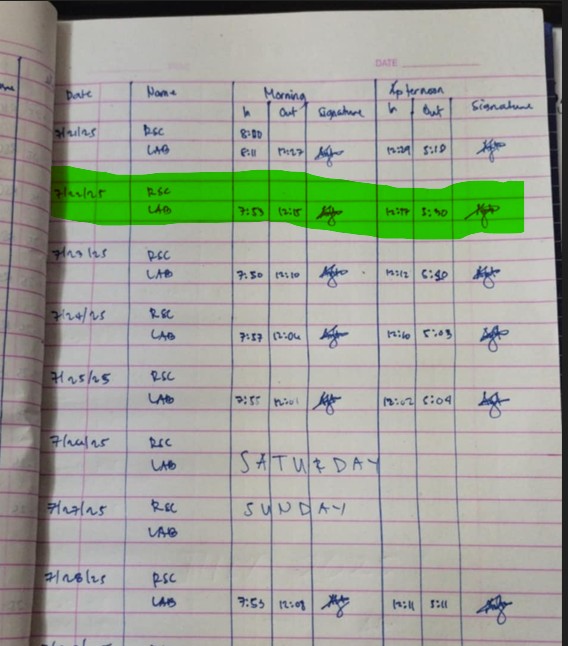 DATE
Date Name Morning Afternoon
In Out Signature In Out Signature
7/21/25 RSC 8:00
LAB 8:11 12:27 12:29 5:18
7/22/25 RSC
LAB 7:53 12:15 12:17 5:30
7/23/25 RSC
LAB 7:50 12:10 12:12
7/24/25 RSC
LAB 7:57 12:06 12:10 5:03
7/25/25 RSC
LAB 7:55 12:01 12:02 5:04
7/26/25 RSC
LAB SATURDAY
7/27/25 RSC SUNDAY
LAB
7/28/25 RSC
LAB 7:53 12:08 12:11 5:11